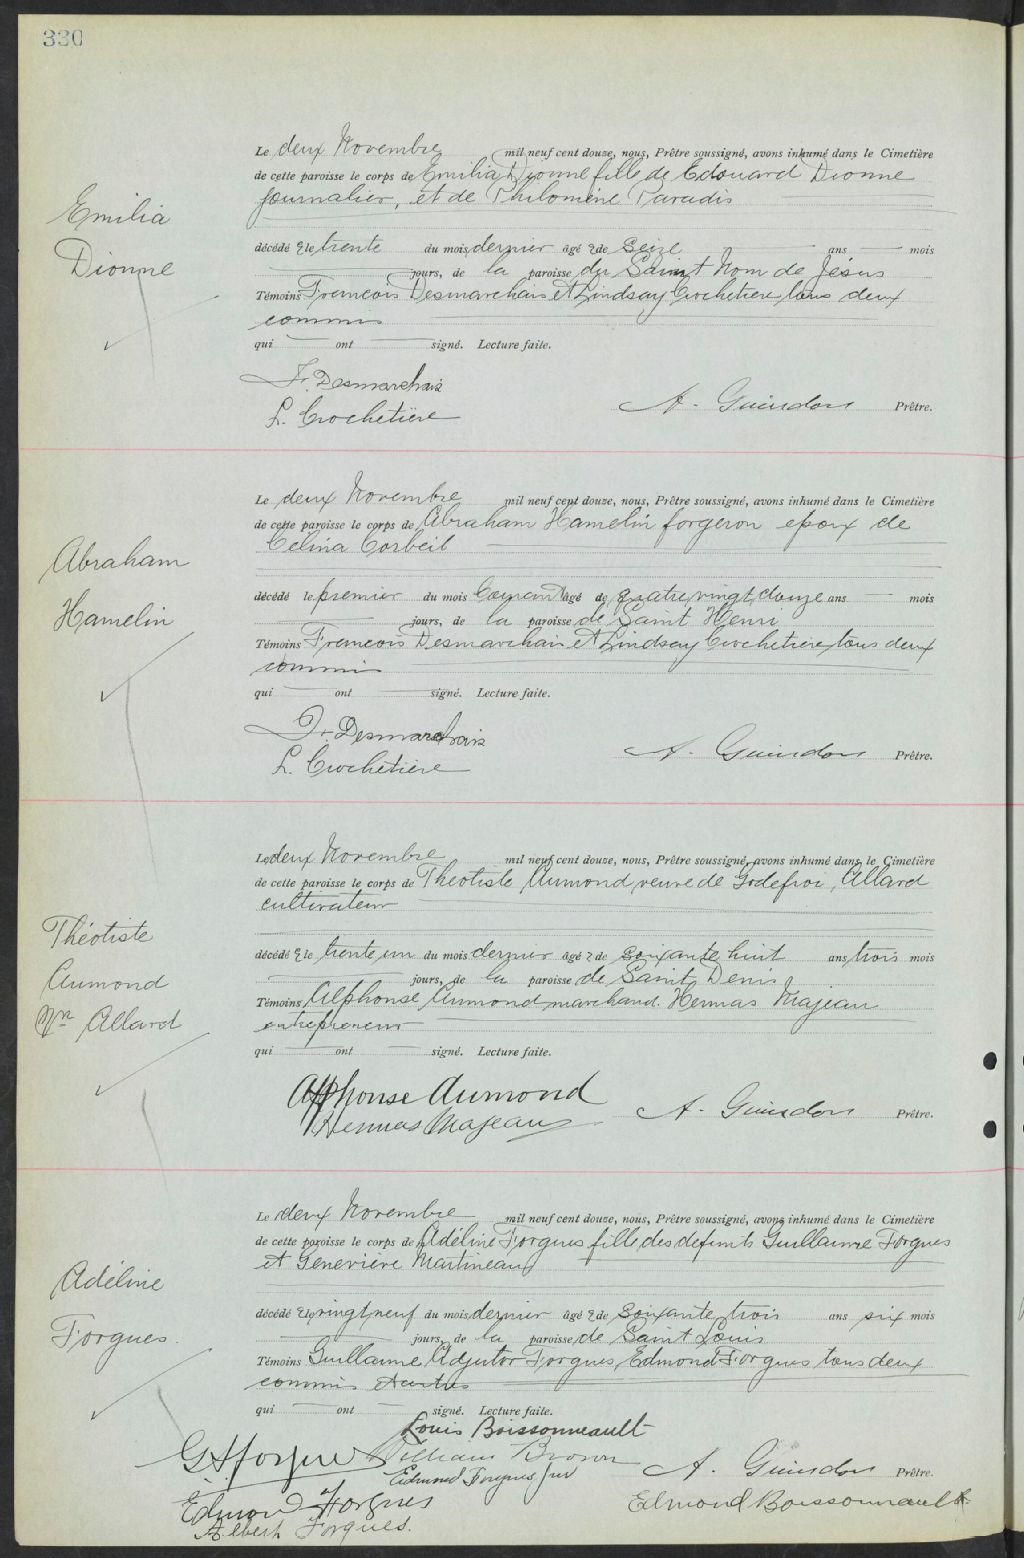 330
Emilia
Dionne
Le deux Novembre mil neuf cent douze, nous, Prêtre soussigné, avons inhumé dans le Cimetière
de cette paroisse le corps de Emilia Dionne fille de Edouard Dionne
journalier, et de Philomène Paradis
décédé e le trente du mois dernier âgé e de Seize ans mois
jours, de la paroisse du Saint Nom de Jésus
Témoins Francois Desmarchais et Lindsay Crochetiere tous deux
commis
qui ont signé. Lecture faite.
F. Desmarchais
L. Crochetière
A. Guindon Prêtre.
Abraham
Hamelin
Le deux Novembre mil neuf cent douze, nous, Prêtre soussigné, avons inhumé dans le Cimetière
de cette paroisse le corps de Abraham Hamelin forgeron epoux de
Celina Corbeil
décédé le premier du mois Courant âgé de quatre vingt douze ans mois
jours, de la paroisse de Saint Henri
Témoins Francois Desmarchais et Lindsay Crochetiere tous deux
commis
qui ont signé. Lecture faite.
F. Desmarchais
L. Crochetière
A. Guindon Prêtre.
Théotiste
Aumond
Vve Allard
Le deux Novembre mil neuf cent douze, nous, Prêtre soussigné, avons inhumé dans le Cimetière
de cette paroisse le corps de Théotiste Aumond veuve de Godefroi Allard
cultivateur
décédé e le trente un du mois dernier âgé e de soixante huit ans trois mois
jours, de la paroisse de Saint Denis
Témoins Alphonse Aumond marchand Hermas Majeau
entrepreneur
qui ont signé. Lecture faite.
Alphonse Aumond
Hermas Majeau
A. Guindon Prêtre.
Adéline
Forgues
Le deux Novembre mil neuf cent douze, nous, Prêtre soussigné, avons inhumé dans le Cimetière
de cette paroisse le corps de Adéline Forgues fille des defunts Guillaume Forgues
et Geneviève Martineau
décédé e le vingt neuf du mois dernier âgé e de Soixante trois ans six mois
jours, de la paroisse de Saint Louis
Témoins Guillaume Adjutor Forgues, Edmond Forgues tous deux
commis et autres
qui ont signé. Lecture faite.
Louis Boissonneault
G A Forgues William Brown
Edmond Forgues Jur
A. Guindon Prêtre.
Edmond Forgues
Edmond Boissonneault
Albert Forgues.